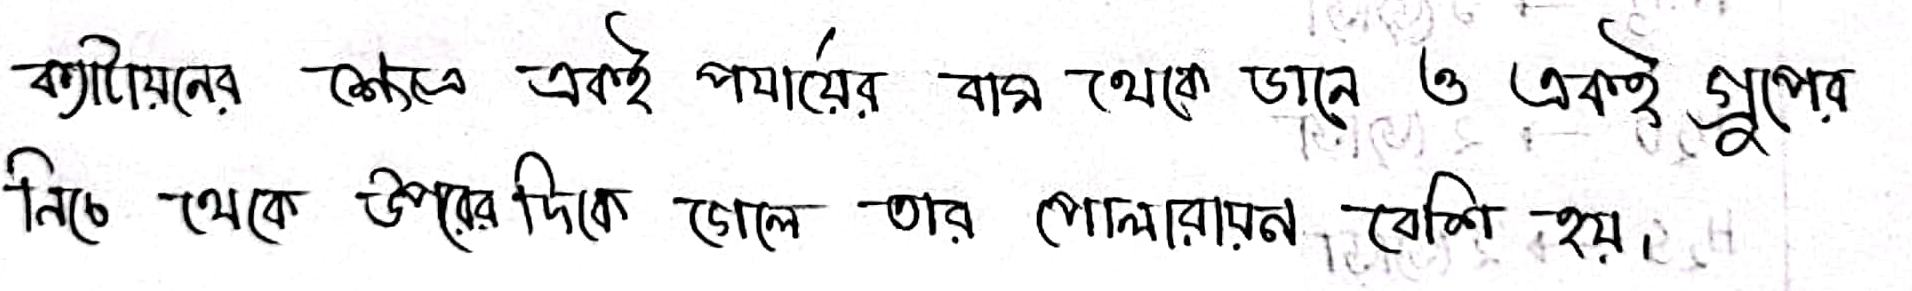 ক্যাটায়নের ক্ষেত্রে একই পর্যায়ের বাম থেকে ডানে ও একই গ্রুপের
নিচে থেকে উপরের দিকে গেলে তার পোলারায়ন বেশি হয়।